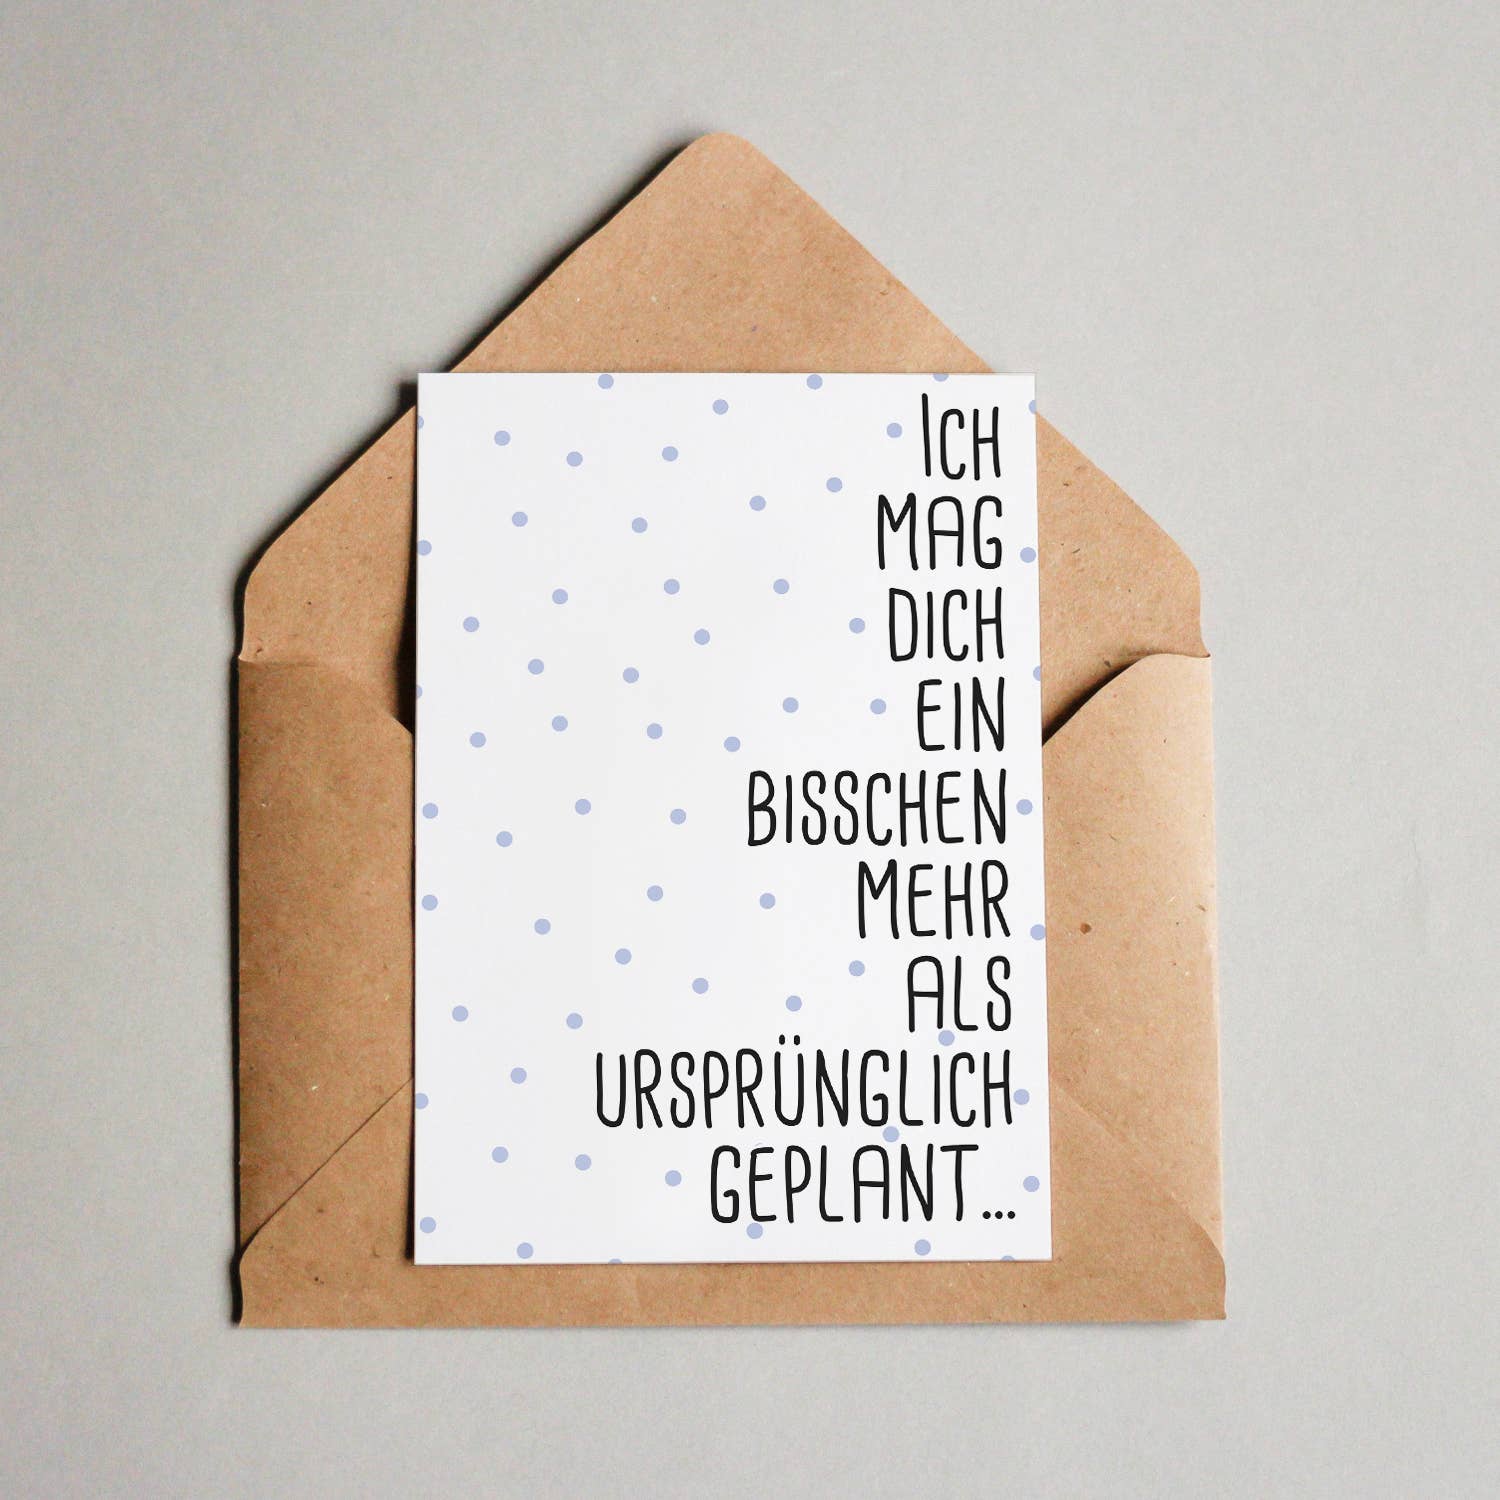 ICH
MAG
DICH
EIN
BISSCHEN
MEHR
ALS
URSPRÜNGLICH
GEPLANT...